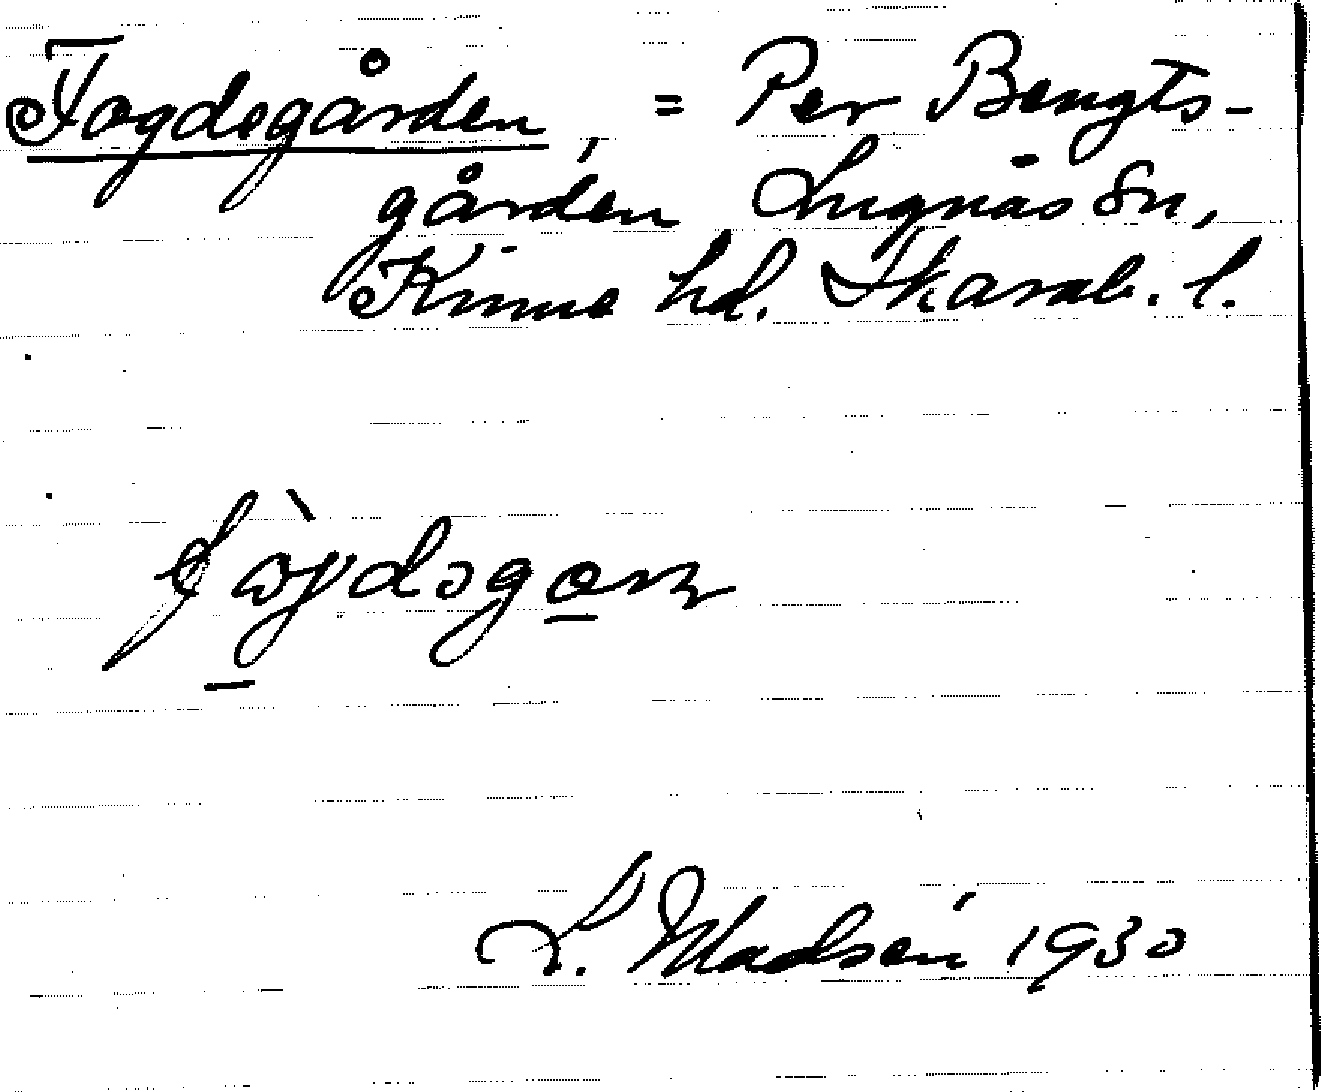 Fogdegården, = Per Bengts-
gården Lugnås sn,
Kinne hd. Skarab. l.
L. Madsén 1930